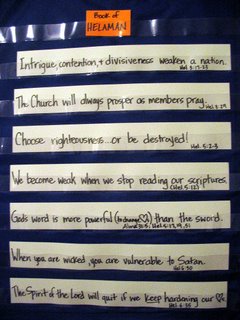 Book of
HELAMAN
Intrigue, contention, & divisiveness weaken a nation.
The Church will always prosper as members pray.
Choose righteousness... or be destroyed!
Hel. 5:2-3
We become weak when we stop reading our scriptures.
(Hel. 5:12)
Gods word is more powerful (to change ♡) than the sword.
When you are wicked, you are vulnerable to Satan.
The Spirit of the Lord will quit if we keep hardening our ♡s.